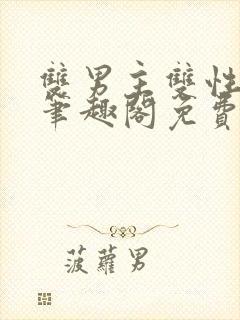 雙男主雙性
筆趣閣免費
菠蘿男